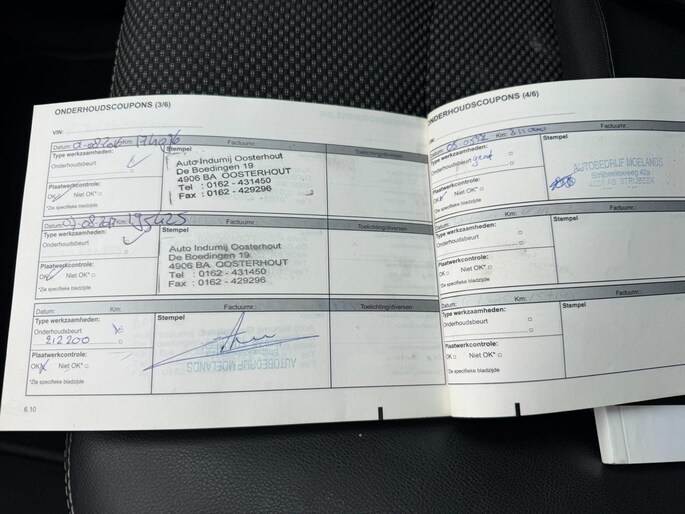 ONDERHOUDSCOUPONS (3/6)
VIN:
Datum: Km: 174036 Factuurnr.:
Type werkzaamheden: Stempel Toelichting/diversen
Onderhoudsbeurt
Plaatwerkcontrole:
OK Niet OK*
*Zie specifieke bladzijde
Auto Indumij Oosterhout
De Boedingen 19
4906 BA OOSTERHOUT
Tel : 0162 - 431450
Fax : 0162 - 429296
Datum: Km: 195425 Factuurnr.:
Type werkzaamheden: Stempel Toelichting/diversen
Onderhoudsbeurt
Plaatwerkcontrole:
OK Niet OK*
*Zie specifieke bladzijde
Auto Indumij Oosterhout
De Boedingen 19
4906 BA OOSTERHOUT
Tel : 0162 - 431450
Fax : 0162 - 429296
Datum: Km: Factuurnr.:
Type werkzaamheden: Stempel Toelichting/diversen
Onderhoudsbeurt
212200
Plaatwerkcontrole:
OK Niet OK*
*Zie specifieke bladzijde
AUTOBEDRIJF MOELANDS
6.10
ONDERHOUDSCOUPONS (4/6)
Datum: Km: Factuurnr.:
Type werkzaamheden: Stempel
Onderhoudsbeurt
Plaatwerkcontrole:
OK Niet OK*
*Zie specifieke bladzijde
AUTOBEDRIJF MOELANDS
Datum: Km: Factuurnr.:
Type werkzaamheden: Stempel
Onderhoudsbeurt
Plaatwerkcontrole:
OK Niet OK*
*Zie specifieke bladzijde
Datum: Km: Factuurnr.:
Type werkzaamheden: Stempel
Onderhoudsbeurt
Plaatwerkcontrole:
OK Niet OK*
*Zie specifieke bladzijde